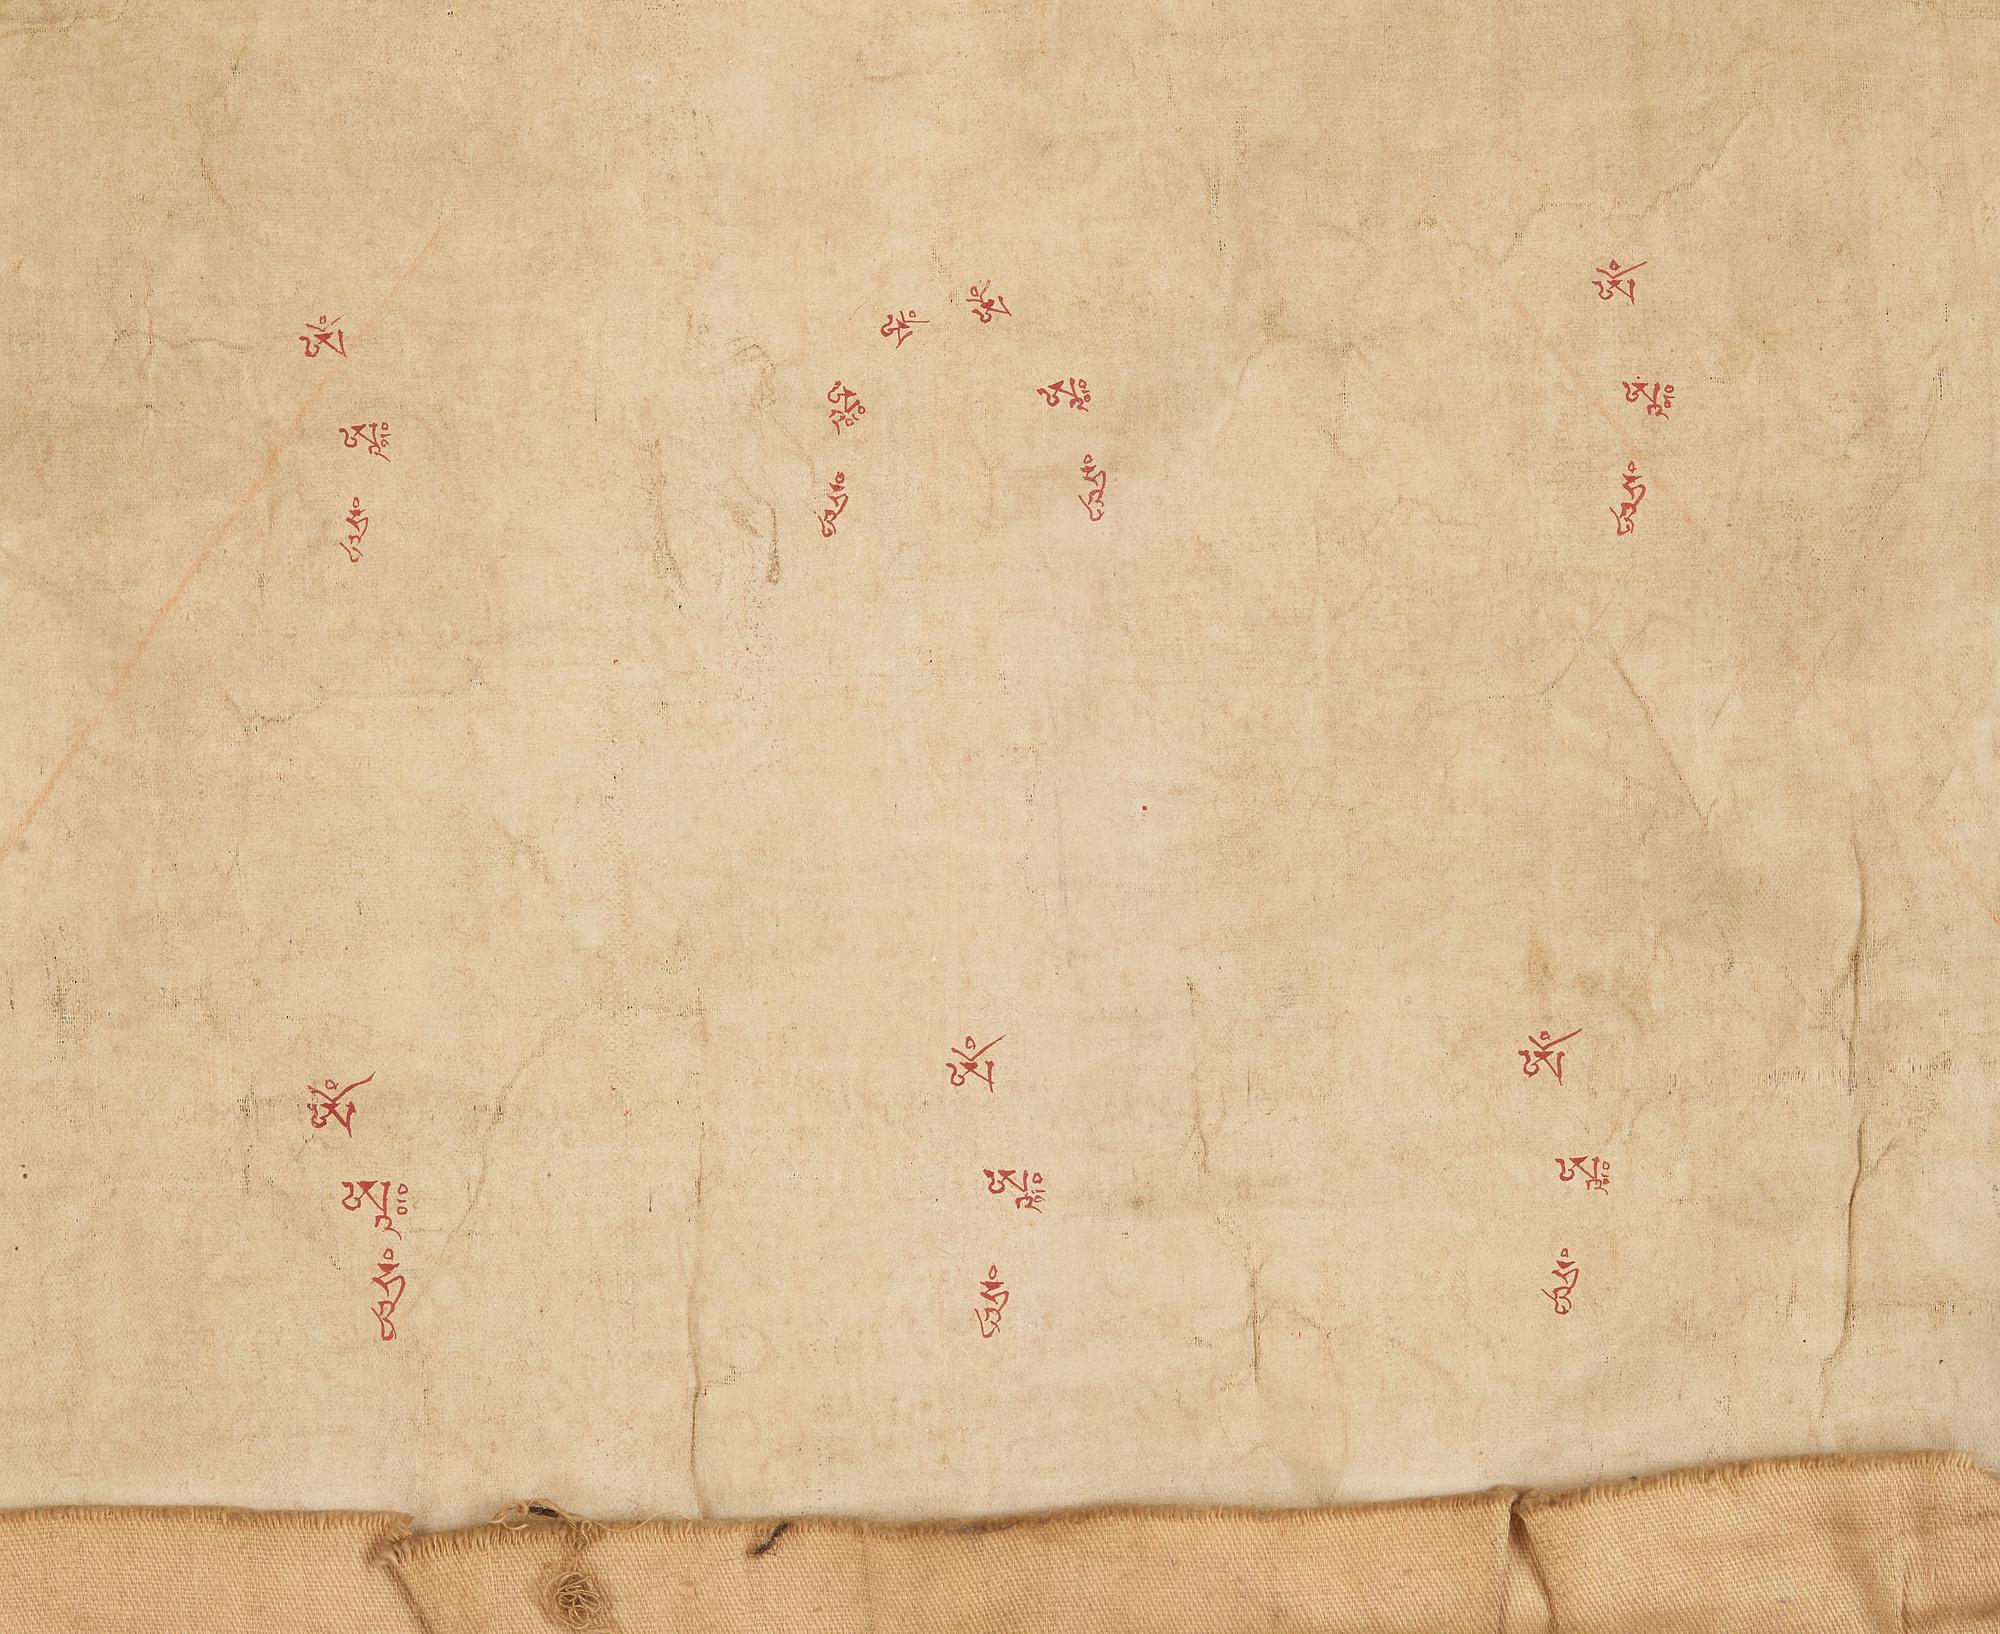 ཨོཾ
ཨཱཿ
ཧཱུཾ
ཨོཾ
ཨཱཿ
ཧཱུཾ
ཨོཾ
ཨཱཿ
ཧཱུཾ
ཨོཾ
ཨཱཿ
ཧཱུཾ
ཨོཾ
ཨཱཿ
ཧཱུཾ
ཨོཾ
ཨཱཿ
ཧཱུཾ
ཨོཾ
ཨཱཿ
ཧཱུཾ